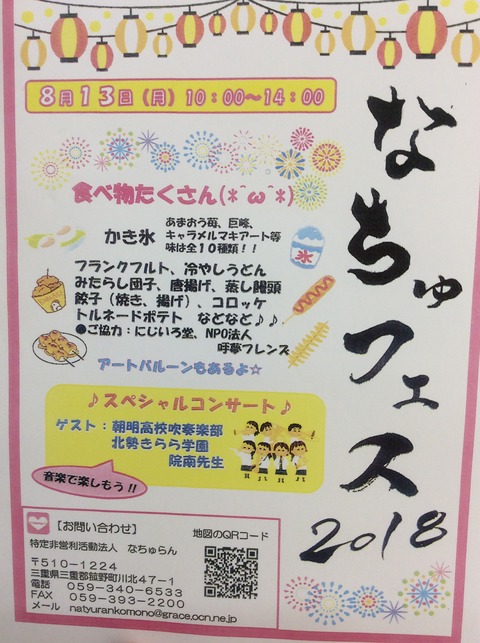 8月13日（月）10：00〜14：00
なちゅフェス2018
食べ物たくさん(*^ω^*)
かき氷
あまおう苺、巨峰、
キャラメルマキアート等
味は全10種類！！
氷
フランクフルト、冷やしうどん
みたらし団子、唐揚げ、蒸し饅頭
餃子（焼き、揚げ）、コロッケ
トルネードポテト　などなど♪♪
●ご協力：にじいろ堂、NPO法人
呼夢フレンズ
アートバルーンもあるよ☆
♪スペシャルコンサート♪
ゲスト：朝明高校吹奏楽部
北勢きらら学園
院南先生
音楽で楽しもう!!
【お問い合わせ】
地図のQRコード
特定非営利活動法人　なちゅらん
〒510-1224
三重県三重郡菰野町川北47-1
電話　059-340-6533
FAX　059-393-2200
メール　natyurankomono@grace.ocn.ne.jp